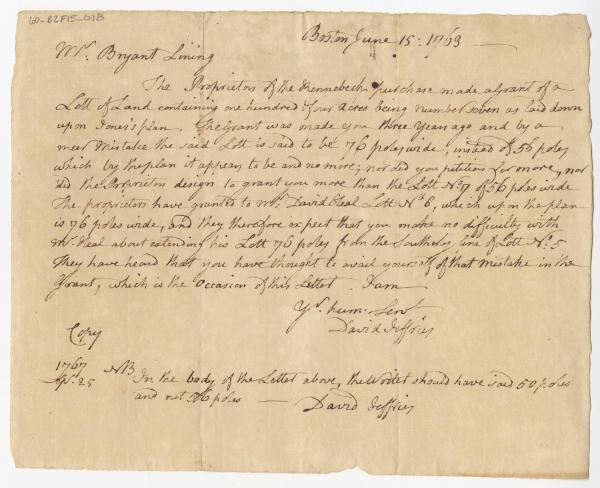 60-82F15-018
Boston June 15. 1763
Mr. Bryant Lining
The Proprietors of the Kennebeck purchase made a Grant of a
Lott of Land containing one hundred & four Acres being number seven as laid down
upon Jones's plan. The Grant was made you three Years ago and by a
meer Mistake the said Lott is said to be 76 poles wide, instead of 56 poles
which by the plan it appears to be and no more; nor did you petition for more, nor
did the Proprietors design to grant you more than the Lott No. 7 of 56 poles wide
The proprietors have granted to Mr. David Neal Lott No 6, which upon the plan
is 76 poles wide, and they therefore expect that you make no difficulty with
Mr. Neal about extending his Lott 76 poles from the Southerly line of Lott No. 5
They have heard that you have thought to avail yourself of that mistake in the
Grant, which is the Occasion of this Letter. I am
Yr. hum. Servt
David Jeffries
Copy
1767
Apr. 25
NB
In the body of the Letter above, the Writer should have said 50 poles
and not 76 poles — David Jeffries